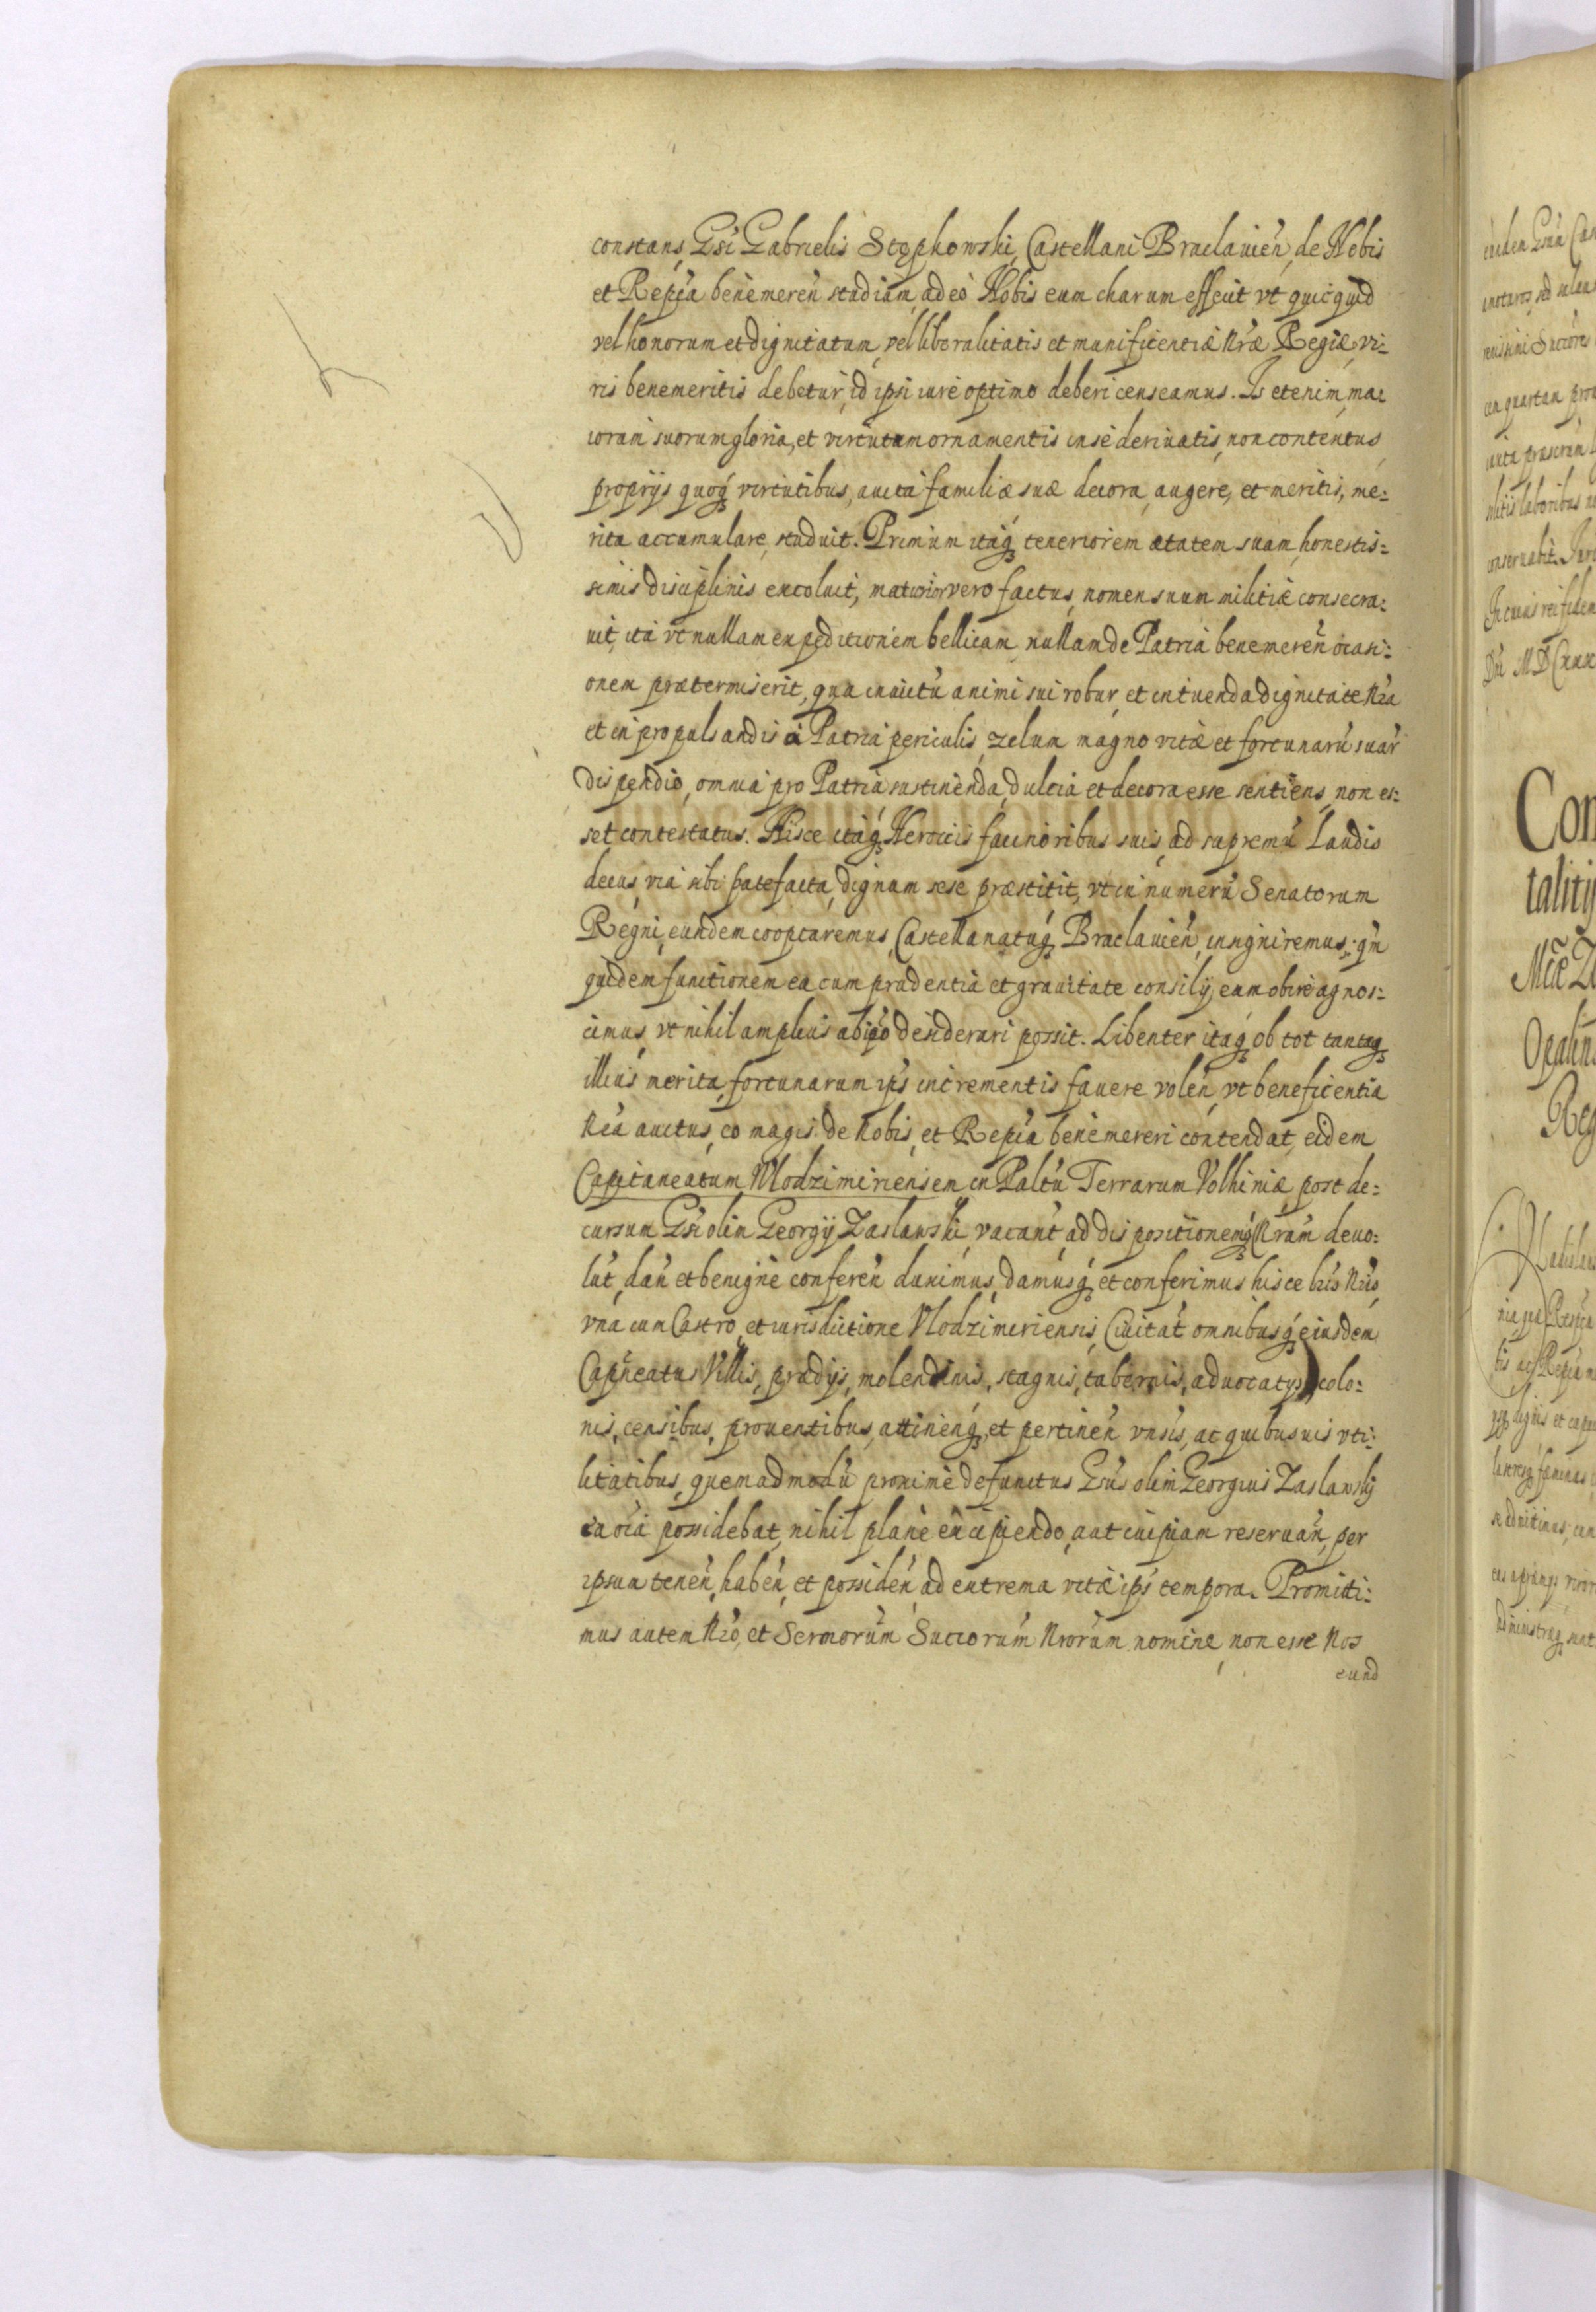 constans, Gsi Gabrielis Stępkowski, Castellani Braclauień, de Nobis
et Repca benemereń studium, adeò Nobis eum charum effecit vt quicquid
vel honorum et dignitatum, vel liberalitatis et munificentiæ Nræ Regiæ, vi=
ris benemeritis debetur, id ipsi iure optimo deberi censeamus. Is etenim, ma=
iorum suorum gloria, et virtutum ornamentis in se deriuatis, non contentus,
proprijs quoq virtutibus, aucta familiæ suæ decora, augere, et meritis, me=
rita accumulare, studuit. Primum itaq teneriorem ætatem suam, honestis=
simis disciplinis excoluit, maturior vero factus, nomen suum militiæ consecra=
uit, ita vt nullam expeditionem bellicam, nullam de Patria benemereń ocasi=
onem prætermiserit, qua inuictū animi sui robur, et in tuenda dignitate Nra
et in propulsandis à Patria periculis, zelum magno vitæ et fortunarū suar
dispendio, omnia pro Patria sustinenda, dulcia et decora esse sentiens, non es=
set contestatus. Hisce itaq Heroicis facinoribus suis, ad supremū Laudis
decus, via sibi patefacta, dignum sese præstitit, vt in numerū Senatorum
Regni, eundem cooptaremus, Castellanatuq Braclauień, insigniremus, qm
quidem functionem ea cum prudentia et grauitate consilij, eum obire agnos=
cimus, vt nihil amplius ab ipo desiderari possit. Libenter itaq ob tot tantaq
illius merita, fortunarum ips incrementis fauere voleń, vt beneficentia
Nra auctus, eo magis de Nobis, et Repca benemereri contendat, eidem
Capitaneatum Wlodzimiriensem in Paltū Terrarum Volhiniæ post de=
cursum Gsi olim Georgij Zaslawski, vacant, ad dispositionemq Nram deuo=
lut, dań et benignè confereń duximus, damusq et conferimus hisce lris Nris,
vnà cum Castro, et iurisdictione Vlodzimiriensis, Ciuitat omnibusq eiusdem
Capneatus Villis, prædijs, molendinis, stagnis, tabernis, aduocatys, colo=
nis, censibus, prouentibus, attineńq, et pertineń vnsis, ac quibusuis vti=
litatibus, quemadmodū proximè defunctus Gsus olim Georgius Zaslawsky
ea oia possidebat, nihil planè excipiendo, aut cuipiam reseruań, per
ipsum teneń, habeń, et possideń, ad extrema vitæ ips tempora. Promitti=
mus autem Nro, et Sermorum Succorum Nrorum nomine, non esse Nos
eund